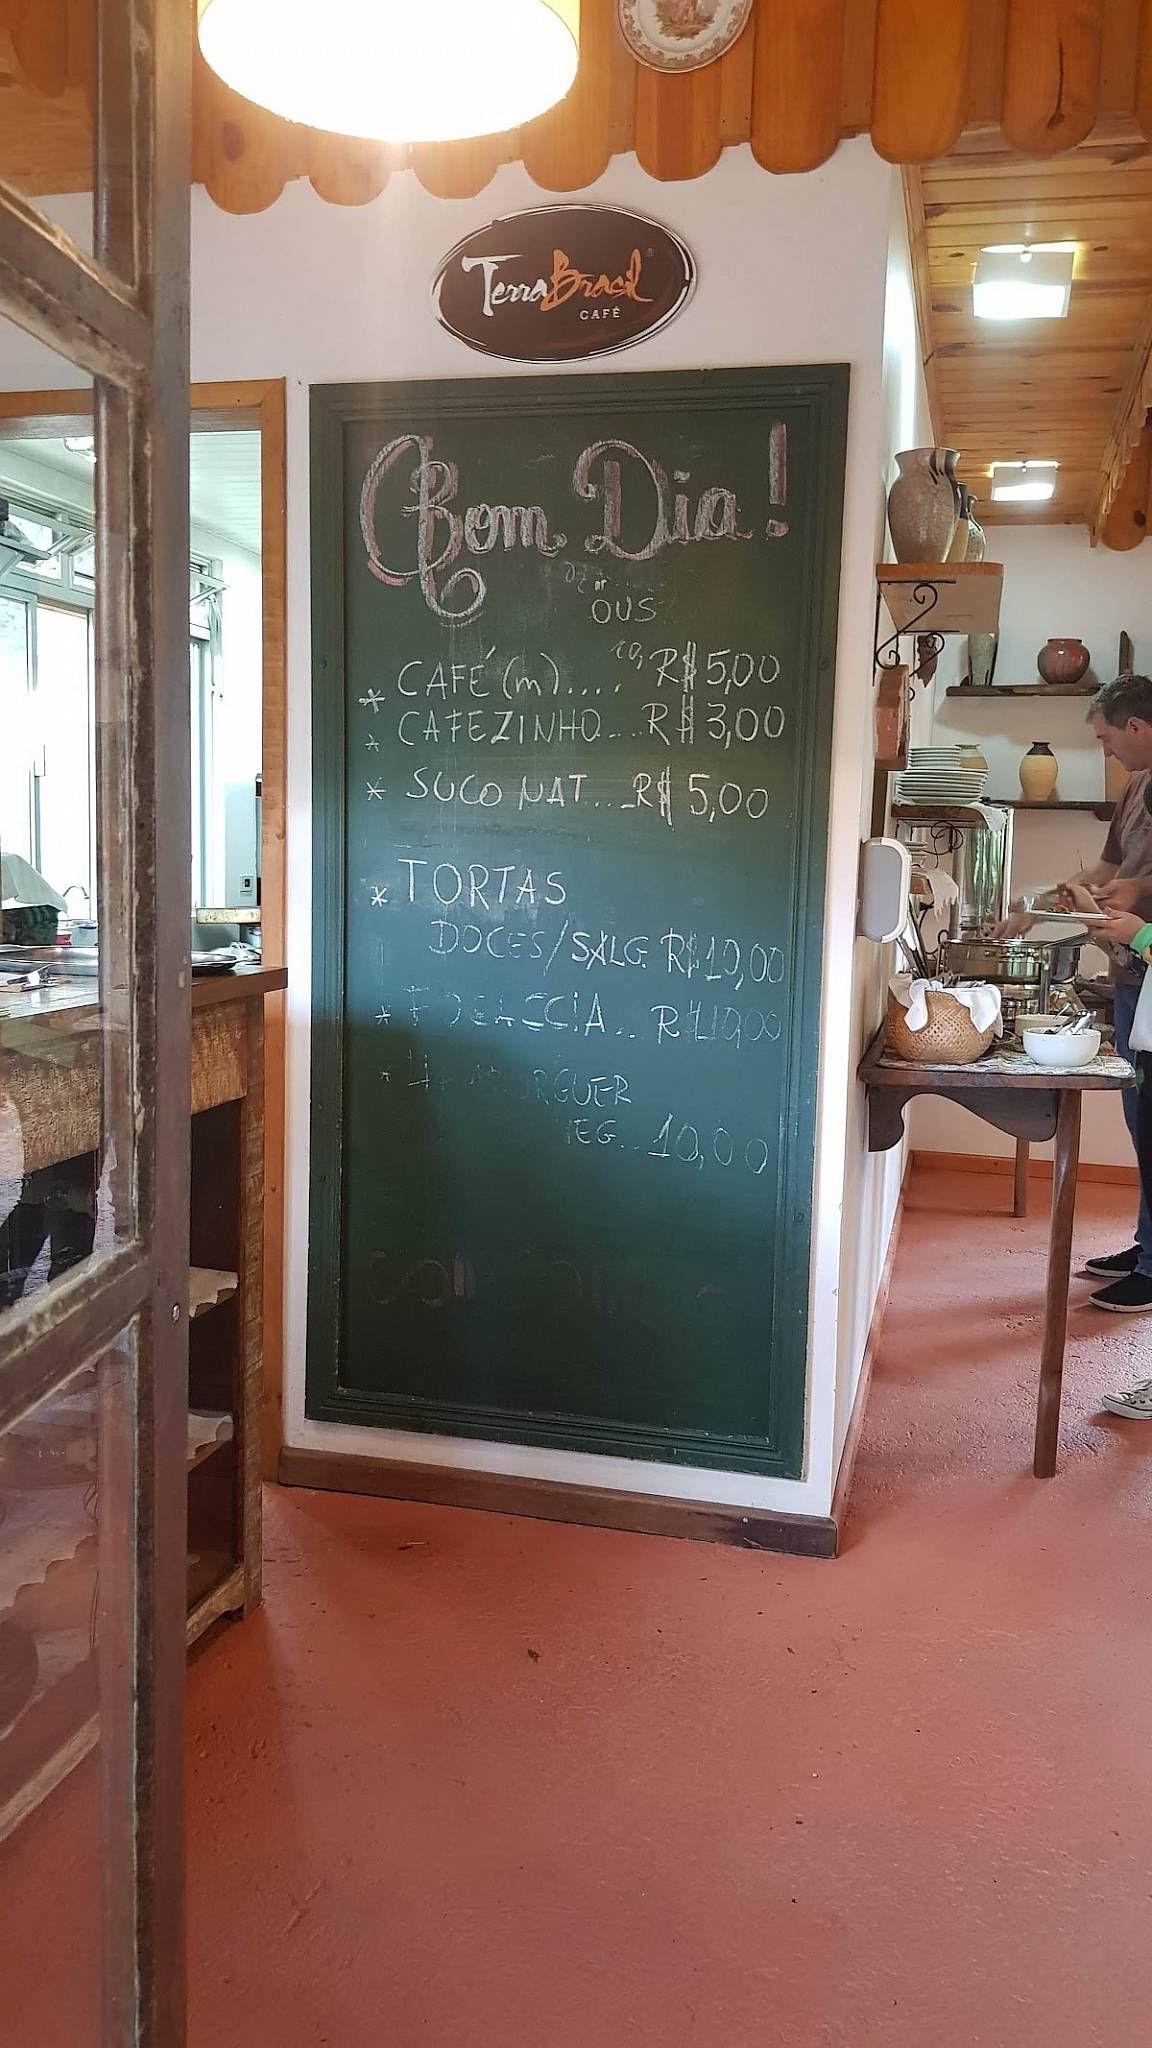 TerraBrasil
CAFÉ
Bom Dia!
OUS
* CAFÉ (m).... R$ 5,00
* CAFEZINHO....R$ 3,00
* SUCO NAT...R$ 5,00
* TORTAS
DOCES/SALG. R$ 10,00
* R$ 10,00
*
10,00